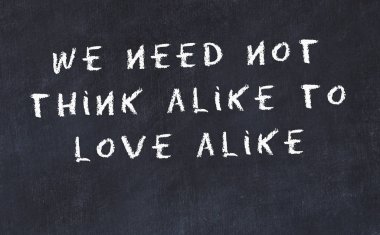 WE NEED NOT
THINK ALIKE TO
LOVE ALIKE